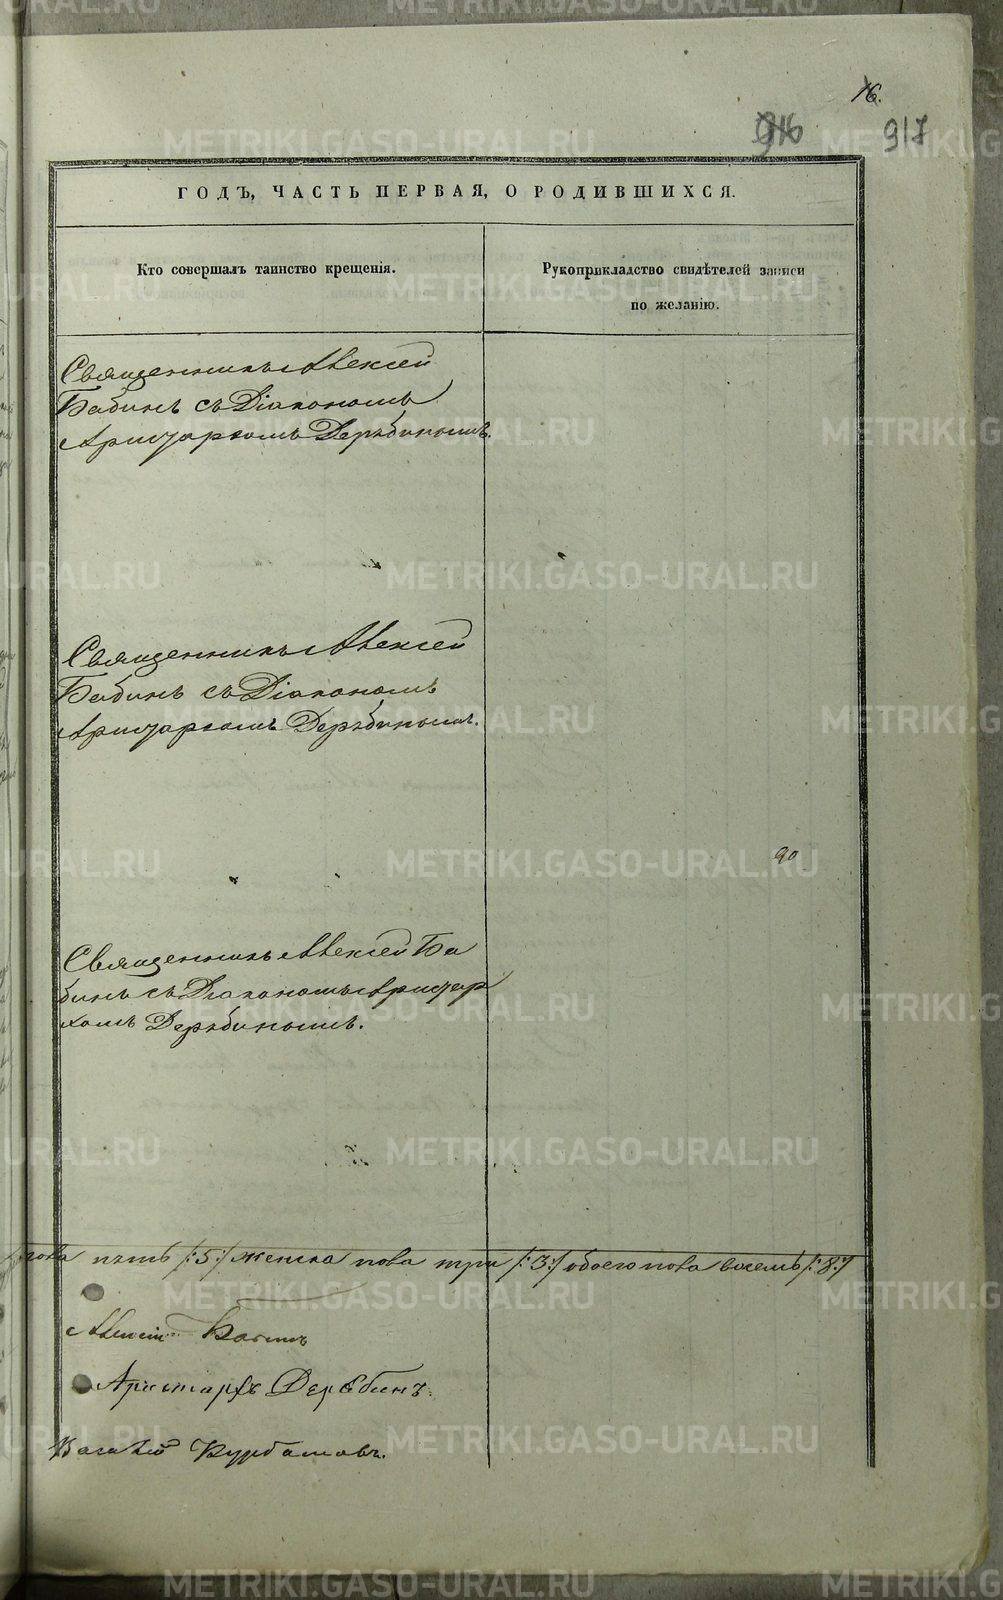 16.
916 917
ГОДЪ, ЧАСТЬ ПЕРВАЯ, О РОДИВШИХСЯ.
Кто совершалъ таинство крещенія.
Рукоприкладство свидѣтелей записи
по желанію.
Священникъ Алексѣй
Бабинъ съ Діакономъ
Аристархомъ Дерябинымъ.
Священникъ Алексѣй
Бабинъ съ Діакономъ
Аристархомъ Дерябинымъ.
90
Священникъ Алексѣй Ба
бинъ съ Діакономъ Аристар
хомъ Дерябинымъ.
пола пять /:5:/ женска пола три /:3:/ обоего пола восемь /:8:/
Алексій Бабинъ
Аристархъ Дерябинъ.
Курбатовъ.
METRIKI.GASO-URAL.RU